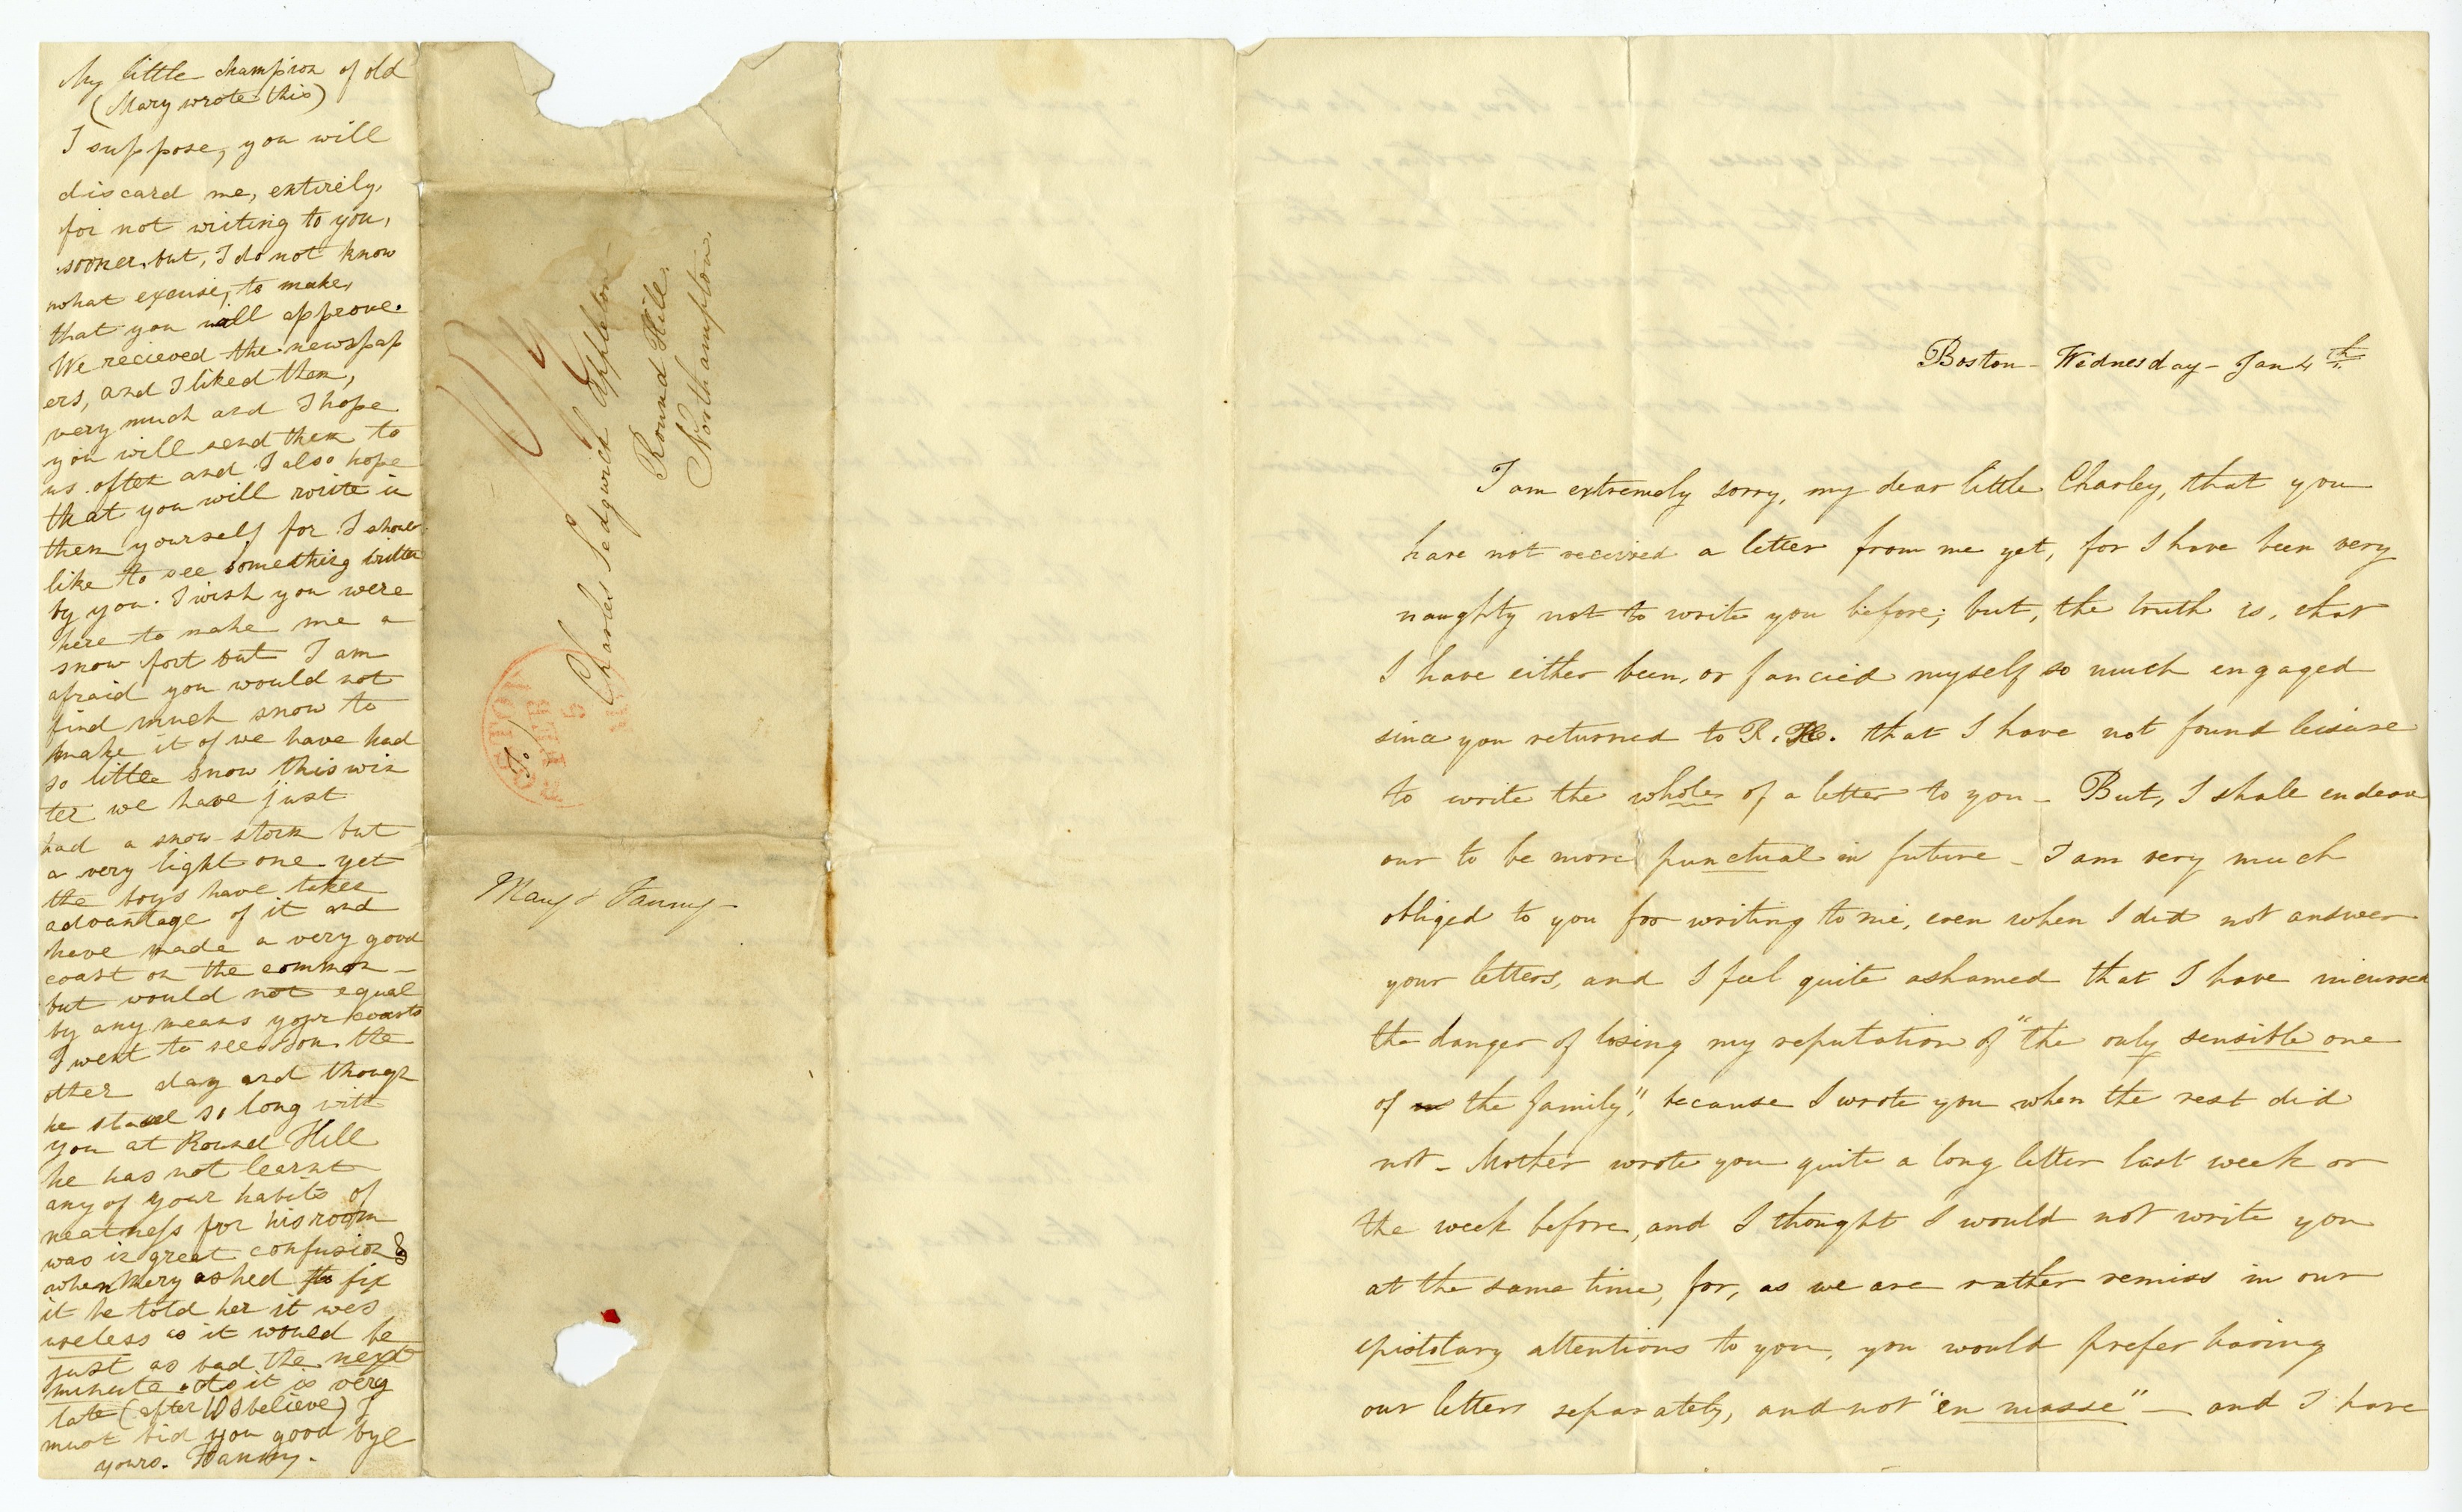 My little champion of old
(Mary wrote this)
I suppose, you will
discard me, entirely,
for not writing to you,
sooner, but, I do not know
what excuse, to make,
that you will approve.
We recieved the newspap
ers, and I liked them,
very much and I hope
you will send them to
us often and I also hope
that you will write in
them yourself for I shoul
like to see something written
by you. I wish you were
here to make me a
snow fort but I am
afraid you would not
find much snow to
make it of we have had
so little snow this win
ter we have just
had a snow-storm but
a very light one yet
the boys have taken
advantage of it and
have made a very good
coast on the common -
but would not equal
by any means your coasts
I went to see Tom the
other day and though
he staid so long with
you at Round Hill
he has not learnt
any of your habits of
neatness for his room
was in great confusion &
when Mary asked to fix
it he told her it was
useless as it would be
just as bad the next
minute. As it is very
late (after 10 I believe) I
must bid you good bye
yours. Fanny.
To
Charles Sedgwick Appleton
Round Hill,
Northampton.
FEB
5
Mary & Fanny -
Boston - Wednesday - Jan 4th.
I am extremely sorry, my dear little Charley, that you
have not received a letter from me yet, for I have been very
naughty not to write you before; but, the truth is, that
I have either been, or fancied myself so much engaged
since you returned to R. H. that I have not found leisure
to write the whole of a letter to you - But, I shall endeav
our to be more punctual in future - I am very much
obliged to you for writing to me, even when I did not answer
your letters, and I feel quite ashamed that I have incurred
the danger of losing my reputation of "the only sensible one
of the family", because I wrote you when the rest did
not - Mother wrote you quite a long letter last week or
the week before, and I thought I would not write you
at the same time, for, as we are rather remiss in our
epistolary attentions to you, you would prefer having
our letters separately, and not "en masse" - and I have